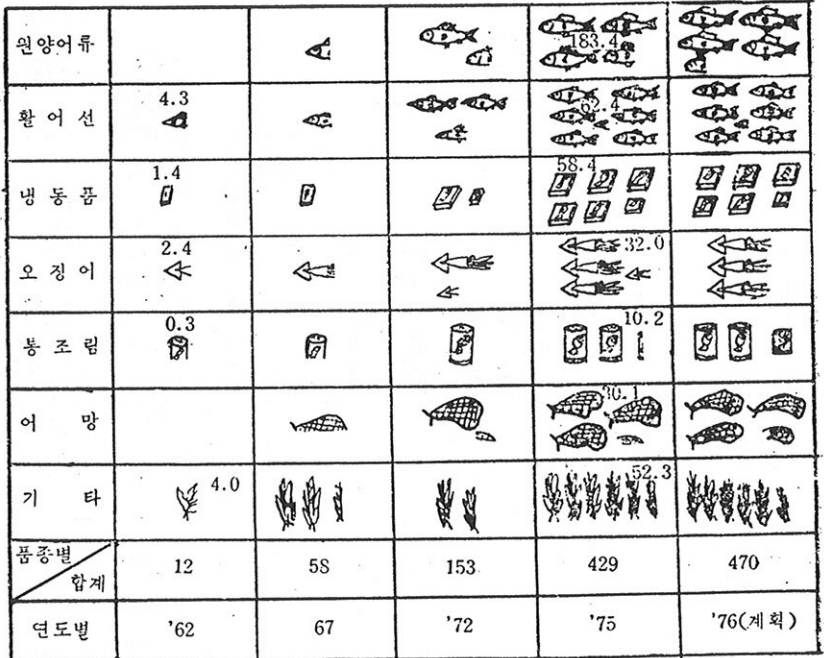 원양어류 183.4
활 어 선 4.3 62.4
냉 동 품 1.4 58.4
오 징 어 2.4 32.0
통 조 림 0.3 10.2
어 망 30.1
기 타 4.0 52.3
품종별
합계 12 58 153 429 470
연도별 '62 67 '72 '75 '76(계획)